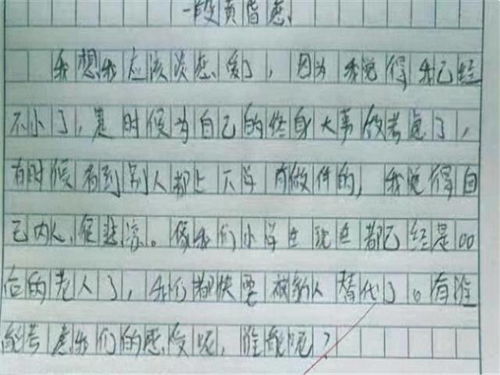 一段黄昏恋
我想我应该谈恋爱了，因为我觉得我已经
不小了，是时候为自己的终身大事做考虑了，
有时候看到别人都上下学有做伴的，我觉得自
己内心很悲凉。像我们小学生现在都已经是00
后的老人了，我们都快要被新人替代了。有谁
能考虑我们的感受呢，谁能呢？